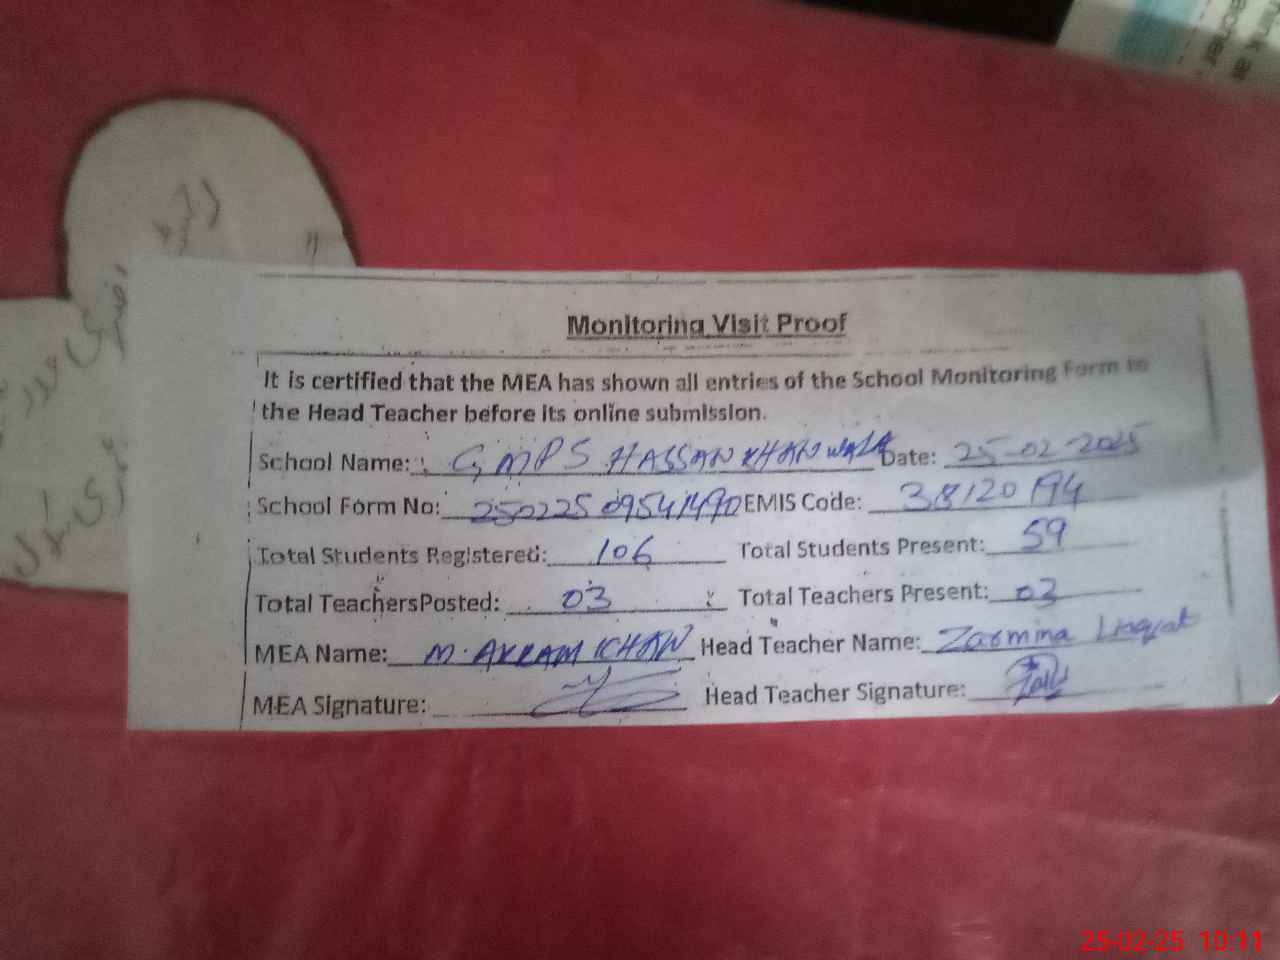 Monitoring Visit Proof
It is certified that the MEA has shown all entries of the School Monitoring Form to
the Head Teacher before its online submission.
School Name: GMPS HASSAN KHAN WALA Date: 25-02-2025
School Form No: 25022509541490 EMIS Code: 38120194
Total Students Registered: 106 Total Students Present: 59
Total TeachersPosted: 03 Total Teachers Present: 03
MEA Name: M. AKRAM KHAN Head Teacher Name: Zarmina Liaqat
MEA Signature: Head Teacher Signature:
25-02-25 10:11